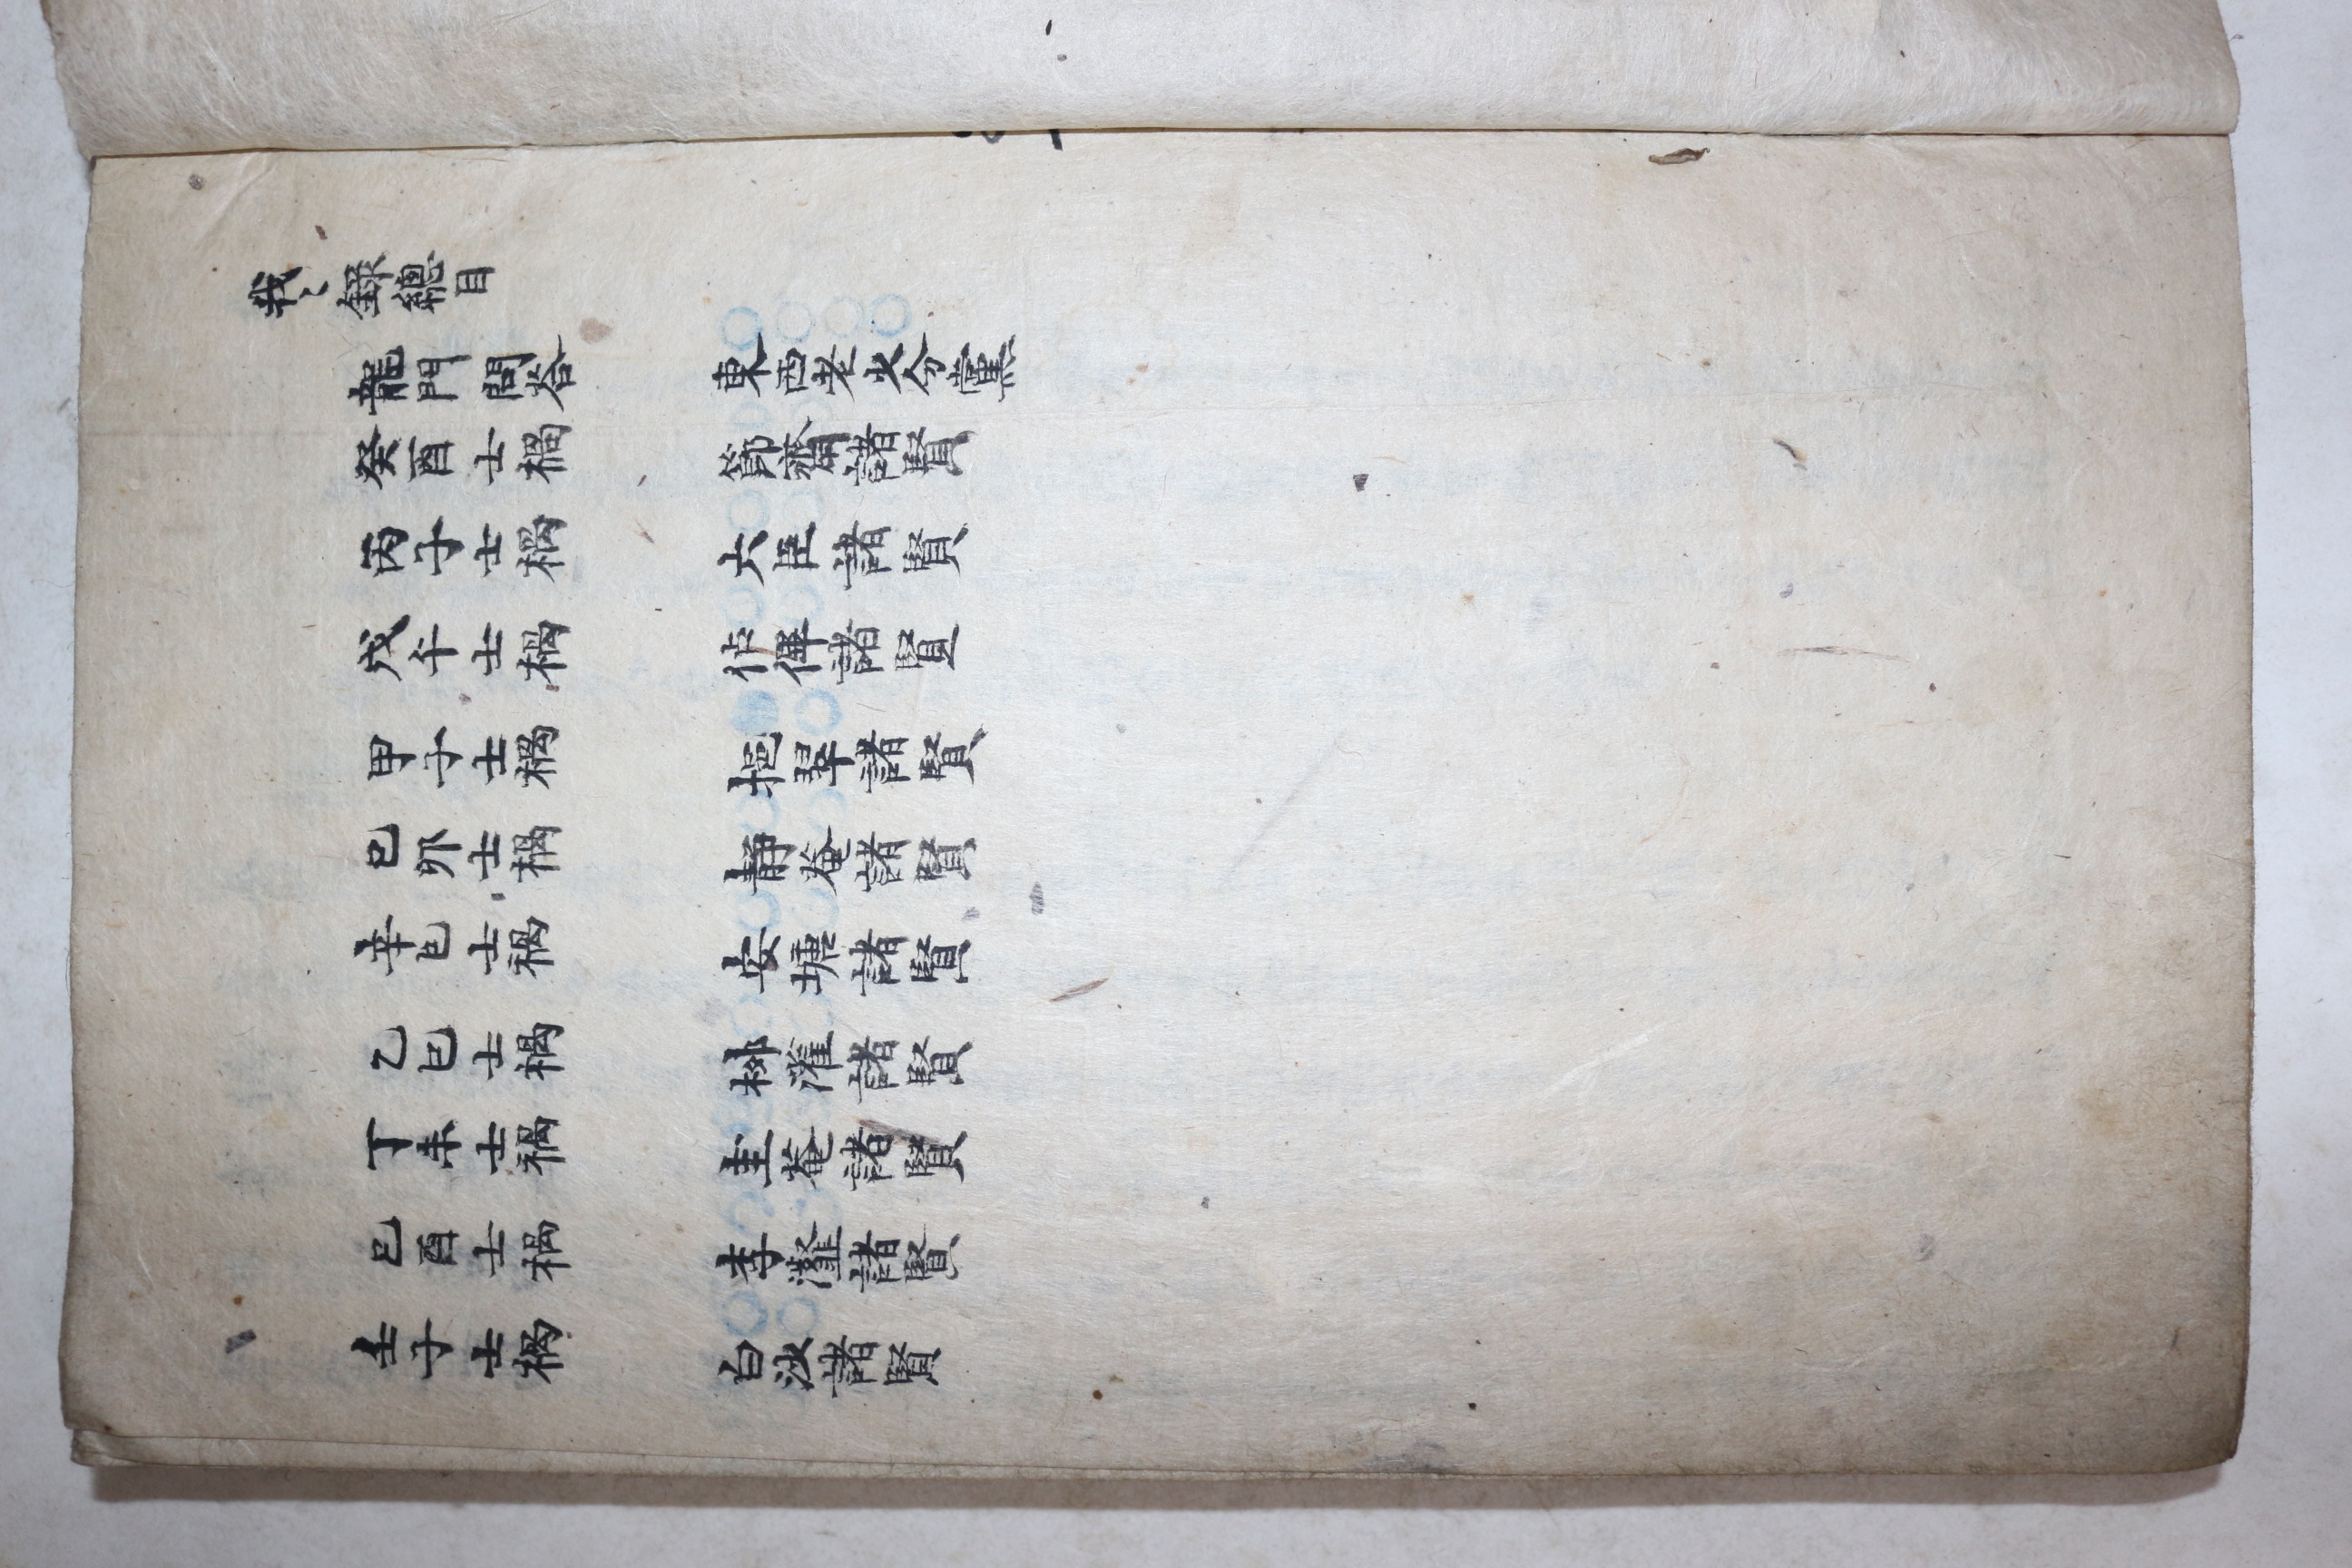 我〻錄總目
龍門問答 東西老少分黨
癸酉士禍 節齋諸賢
丙子士禍 六臣諸賢
戊午士禍 佔諸賢
甲子士禍 挹翠諸賢
己卯士禍 靜菴諸賢
辛巳士禍 安塘諸賢
乙巳士禍 柳灌諸賢
丁未士禍 圭菴諸賢
己酉士禍 李瀣諸賢
壬子士禍 白沙諸賢